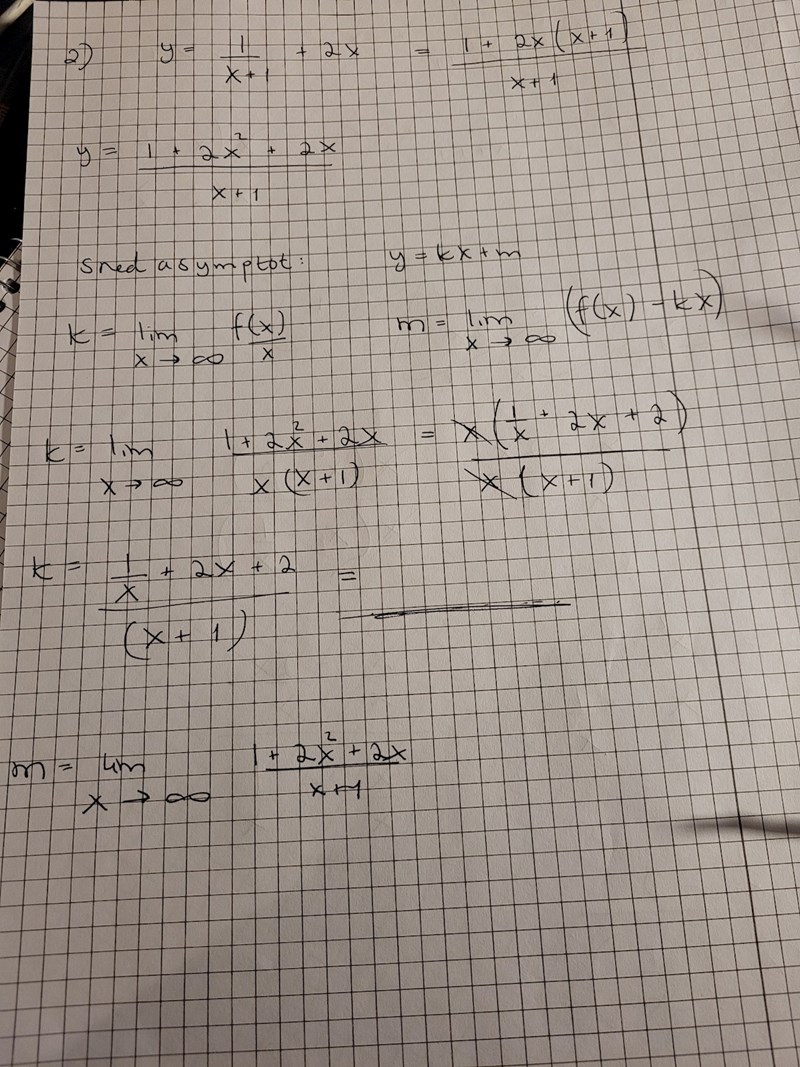 2) y = 1/(x+1) + 2x = (1 + 2x(x+1))/(x+1)
y = (1 + 2x² + 2x)/(x+1)
sned asymptot: y = kx+m
k = lim x→∞ f(x)/x m = lim x→∞ (f(x) - kx)
k = lim x→∞ (1 + 2x² + 2x)/(x(x+1)) = x(1/x + 2x + 2)/(x(x+1))
k = (1/x + 2x + 2)/((x+1)) =
m = lim x→∞ (1 + 2x² + 2x)/(x+1)